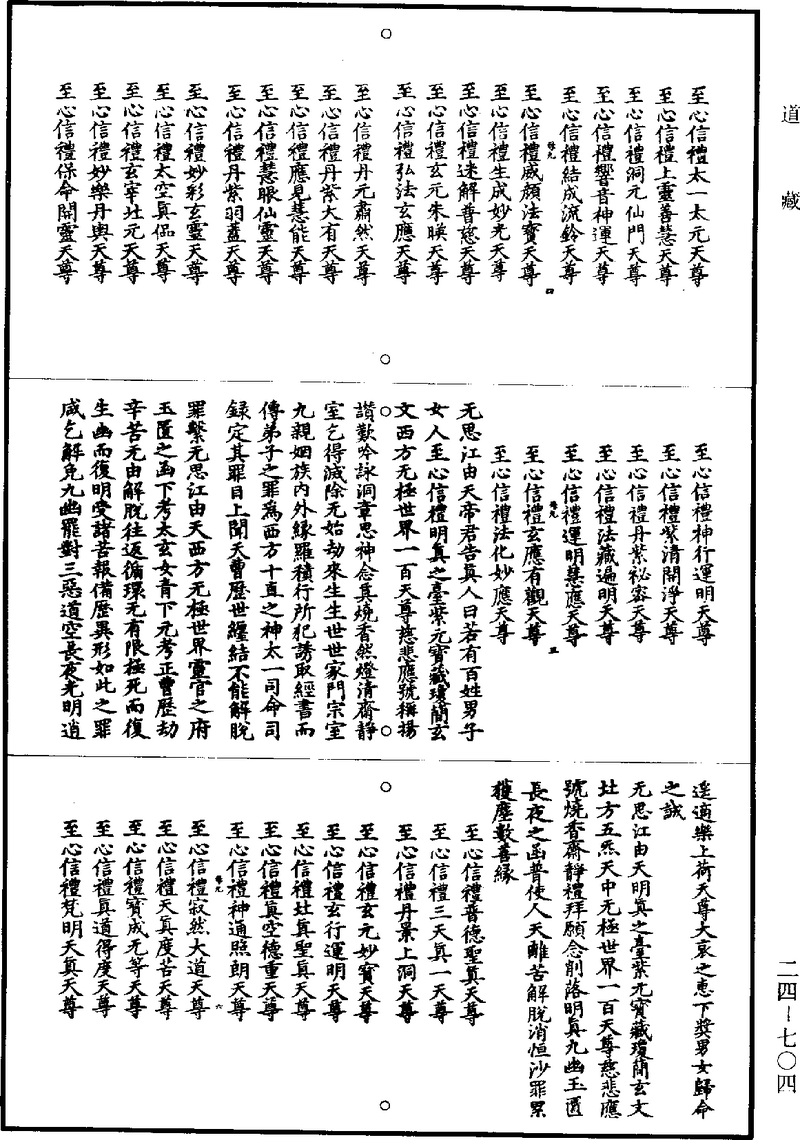 道藏
至心信禮太一太元天尊
至心信禮上靈善慧天尊
至心信禮洞元仙門天尊
至心信禮響音神運天尊
至心信禮結成流鈴天尊
至心信禮威顏法寶天尊
至心信禮生成妙光天尊
至心信禮速解善慈天尊
至心信禮玄元朱暎天尊
至心信禮弘法玄應天尊
至心信禮丹元肅然天尊
至心信禮丹紫大有天尊
至心信禮應見慧能天尊
至心信禮慧眼仙靈天尊
至心信禮丹紫羽蓋天尊
至心信禮妙彩玄靈天尊
至心信禮太空真伾天尊
至心信禮玄宰灶元天尊
至心信禮妙樂丹輿天尊
至心信禮保命開靈天尊
四
至心信禮神行運明天尊
至心信禮紫清開淨天尊
至心信禮丹紫祕密天尊
至心信禮法藏遍明天尊
至心信禮運明慧應天尊
至心信禮玄應有觀天尊
至心信禮法化妙應天尊
五
无思江由天帝君告真人曰若有百姓男子
女人至心信禮明真之臺紫元寶藏瓊簡玄
文西方无極世界一百天尊慈悲應號稱揚
讃歎吟詠洞章思神念真燒香然燈清齋靜
室乞得滅除无始劫來生生世世家門宗室
九親姻族內外緣羅積行所犯誘取經書而
傳弟子之罪爲西方十直之神太一司命司
錄定其罪目上聞天曹歷世纏結不能解脫
罪繫无思江由天西方无極世界靈官之府
玉匱之函下考太玄女青下元考正曹歷劫
辛苦无由解脫往返循環无有限極死而復
生幽而復明受諸苦報備歷異形如此之罪
咸乞解免九幽罷對三惡道空長夜光明逍
遥適樂上荷天尊大哀之恵下獎男女歸命
之誠
无思江由天明真之臺紫元寶藏瓊簡玄文
灶方五炁天中无極世界一百天尊慈悲應
號燒香齋靜禮拜願念削落明真九幽玉匱
長夜之函普使人天離苦解脫消恒沙罪累
獲塵數善緣
至心信禮普德聖真天尊
至心信禮三天真一天尊
至心信禮丹景上洞天尊
至心信禮玄元妙寶天尊
至心信禮玄行運明天尊
至心信禮灶真聖真天尊
至心信禮真空德重天尊
至心信禮神通照朗天尊
至心信禮寂然大道天尊
至心信禮天真度苦天尊
至心信禮寶成无等天尊
至心信禮真道得度天尊
至心信禮梵明天真天尊
六
二四-七〇四